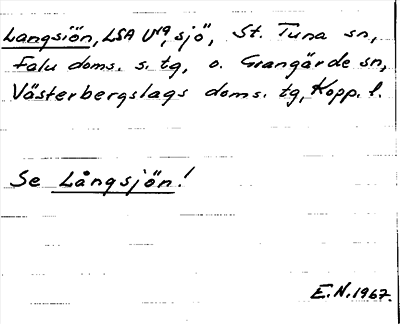 Langsiön, LSA U19, sjö, St. Tuna sn,
Falu doms. s. tg, o. Grangärde sn,
Västerbergslags doms. tg, Kopp. l.
Se Långsjön!
E.N. 1967.